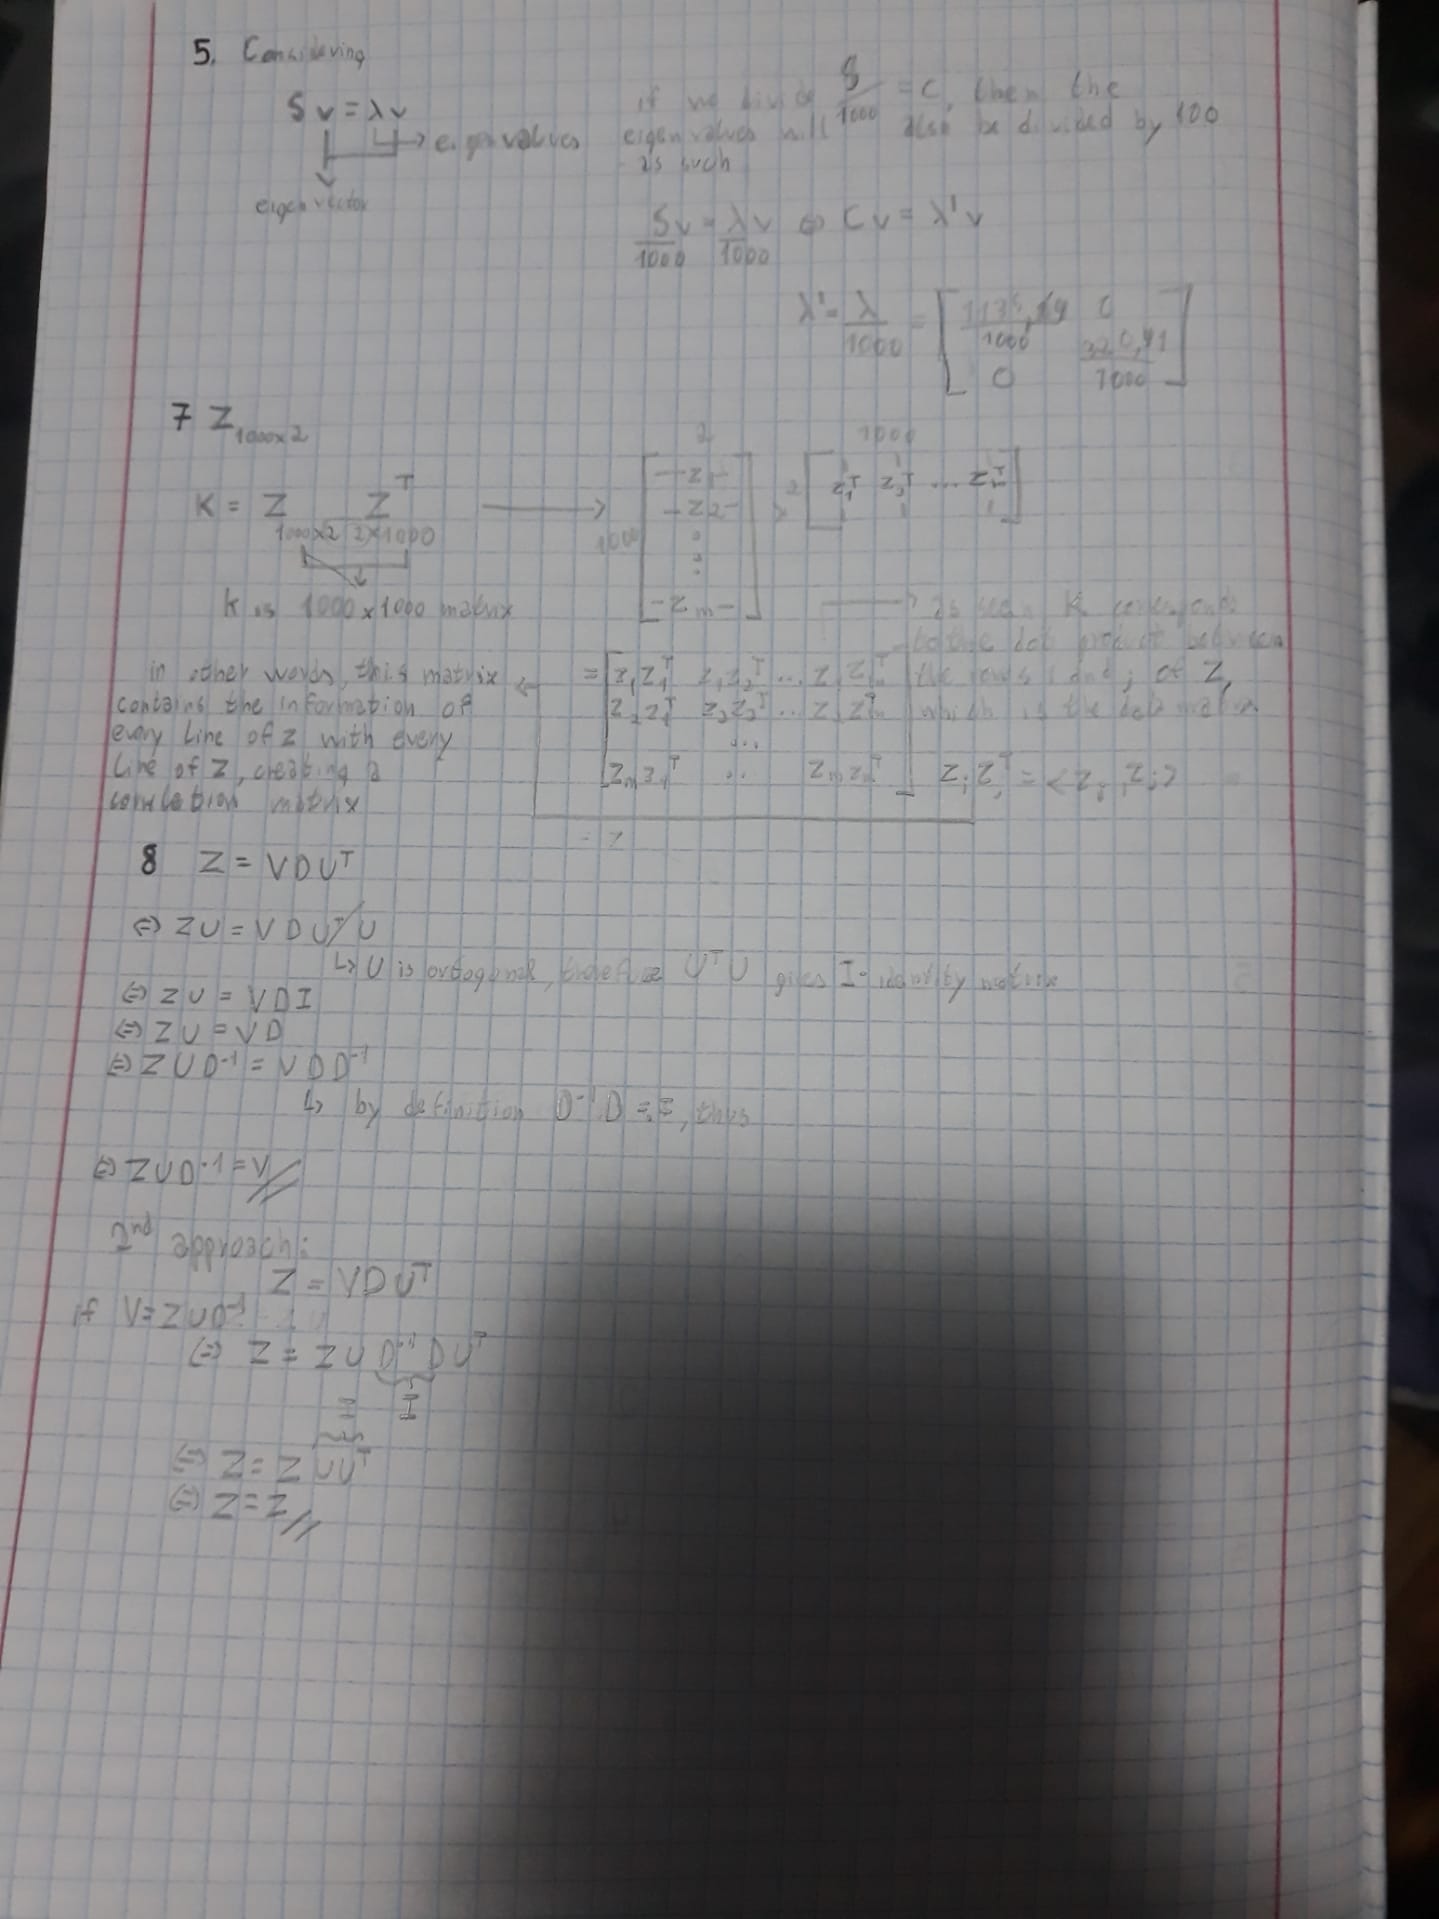 5. Considering
Sv = λv
eigenvalues
eigenvector
if we divide S/1000 = C, then the
eigenvalues will also be divided by 100
as such
Sv/1000 = λv/1000 ⇔ Cv = λ'v
λ' = λ/1000 = [
1000
0 1000 ]
7 Z 1000x2
K = Z Z^T
1000x2 2x1000
K is 1000x1000 matrix
2 1000
[ -z1- [ z1^T z2^T ... zm^T ]
-z2-
1000
-zm- ]
as seen K corresponds
to the dot product between
the rows i and j of Z,
which is the data matrix
= [ z1z1^T z1z2^T ... z1zm^T
z2z1^T z2z2^T ... z2zm^T
...
zmz1^T .. zmzm^T ] zizj^T = <zi, zj>
in other words, this matrix
contains the information of
every line of Z with every
line of Z, creating a
correlation matrix
= Z
8 Z = VDU^T
⇔ ZU = VDU^T U
↳ U is ortogonal, therefore U^T U gives I - identity matrix
⇔ ZU = VDI
⇔ ZU = VD
⇔ ZUD^-1 = VDD^-1
↳ by definition D^-1 D = I, thus
⇔ ZUD^-1 = V//
2nd approach:
Z = VDU^T
if V = ZUD^-1
⇔ Z = ZUD^-1 DU^T
I I
⇔ Z = ZUU^T
⇔ Z = Z//